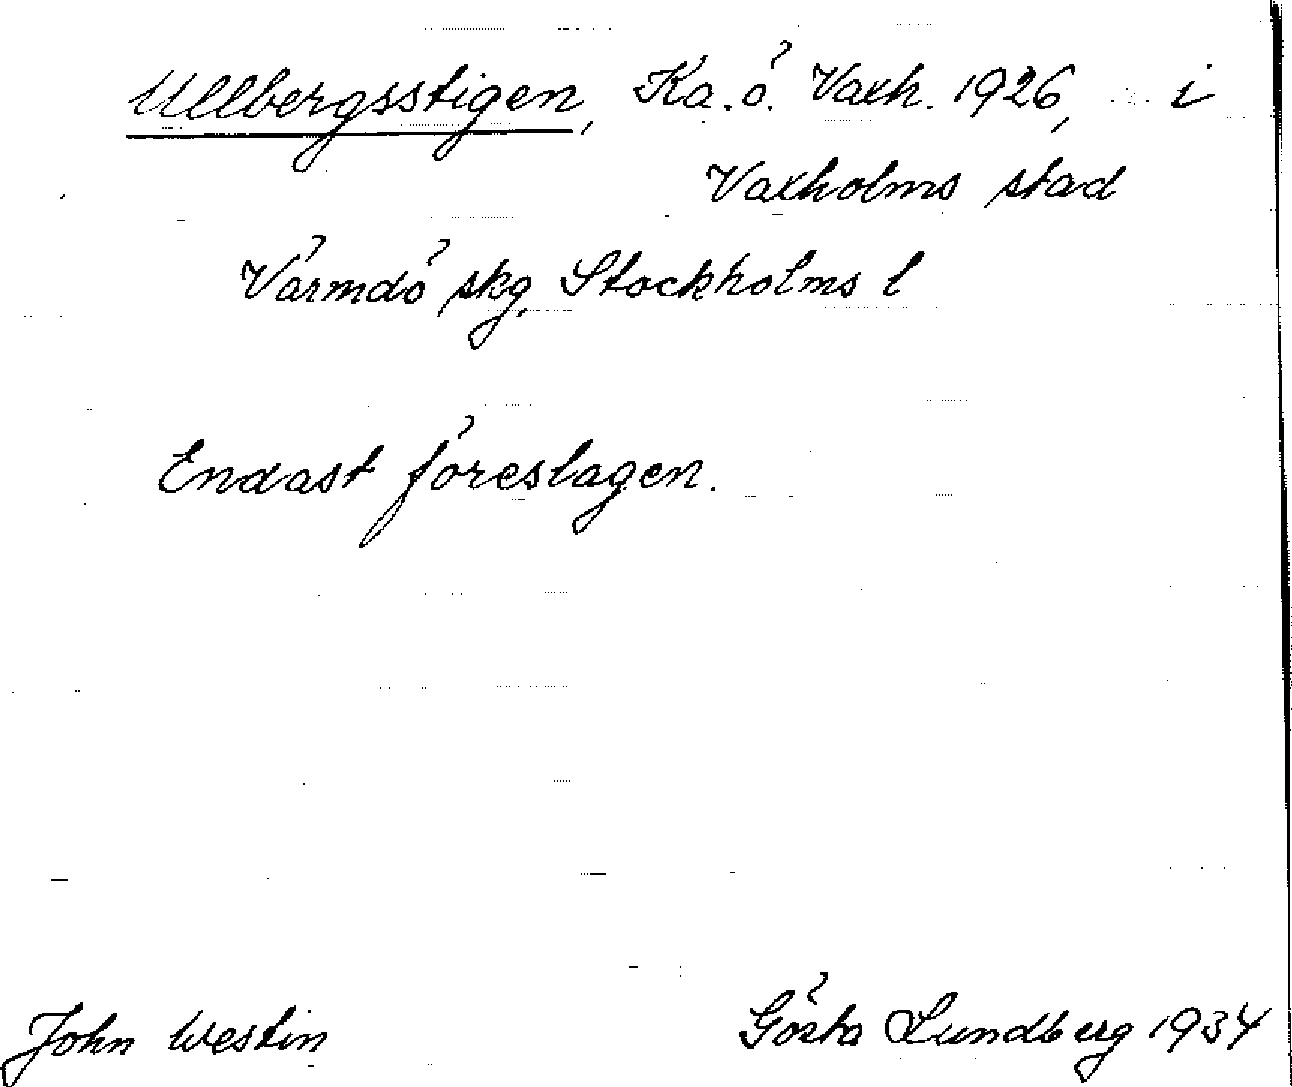 Ullbergsstigen, Ka. ö. Vaxh. 1926, i
Vaxholms stad
Värmdö skg, Stockholms l
Endast föreslagen.
John Westin
Gösta Lundberg 1934